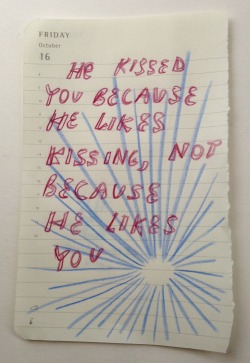 FRIDAY
October
16
HE KISSED
YOU BECAUSE
HE LIKES
KISSING, NOT
BECAUSE
HE LIKES
YOU